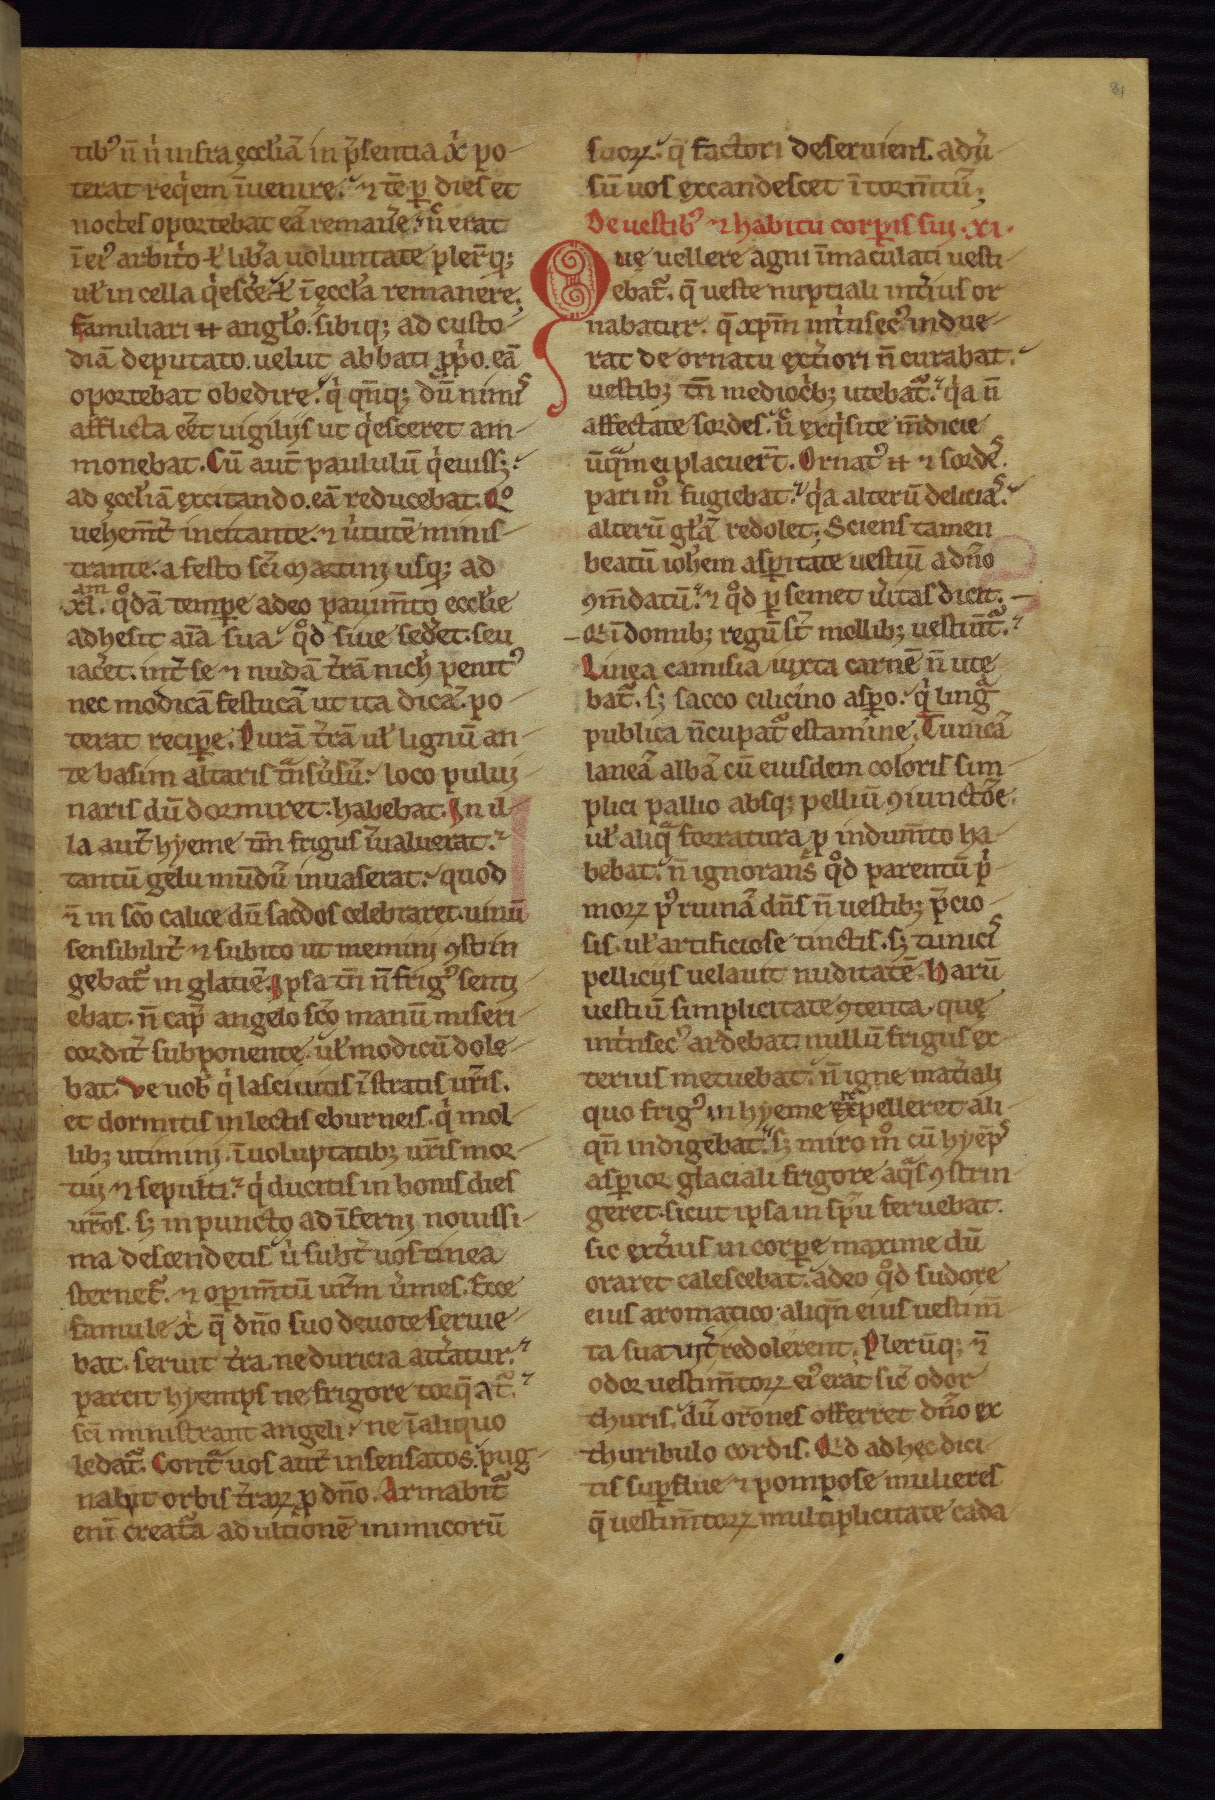 81
tibꝰ n̄ n͛ infra ęccl'iā in p͛sentia xp̄i po-
terat reqͥem īuenire. ⁊ tē ꝑ dies et
noctes oportebat eā remanē͛. n̄ erat
ī eiꝰ arbitͥo ł lib͛a uoluntate pler̄q;
uł in cella qͥesc͛e ł ī ęccl'a remanere.
familiari .n. angl'o. sibiq; ad custo-
diā deputato. uelut abbati ꝓpͥo. eā
oportebat obedire. qͥ qn̄q; dū nimiˢ
afflicta eēt uigiliis ut qͥesceret am-
monebat. Cū aut̄ paululū qͥeuiss;
ad ęccl'iā excitando. eā reducebat. Qͦ
uehem̄t͛ incitante. ⁊ u͛tutē minis-
trante. a festo sc̄i martinj usq; ad
xl.am qͣdā tempꝑe adeo pauim̄to ecclie
adhesit aīa sua qͦd siue sed͛et. seu
iac͛et. int͛ se ⁊ nudā t͛rā nich' penitꝰ
nec modicā festucā ut ita dicā. po-
terat reciꝑe. Durā t͛rā uł lignū an-
te basim altaris tͣnsu͛sū. loco puluj
naris dū dormiret. habebat. In il-
la aut̄ hyeme tm̄ frigus īualuerat.
tantū gelu mūdū inuaserat. quod
⁊ in sc̄o calice dū sac͛dos celebraret. uinū
sensibilit͛ ⁊ subito ut meminj ꝯstrin
gebat᷑ in glatiē. Ipsa tn̄ n̄ frigꝰ senti
ebat. n̄ cap̄ angelo sc̄o manū miseri-
cordit͛ subponente. uł modicū dole-
bat. Ve uob' qͥ lasciuitis ī stratis ur̄is.
et dormitis in lectis eburneis. qͥ mol
lib; utiminj. ī uoluptatib; ur̄is mor-
tui ⁊ sepulti. qͥ ducitis in bonis dies
ur̄os. s; in puncto ad īfernj nouissi-
ma descendetis u͛ subt͛ uos tinea
sternet᷑. ⁊ oꝑim̄tū ur̄m u͛mes. Ecce
famule xp̄i q̄ dn̄o suo deuote seruie
bat. seruit t͛ra. ne duricia att͛atur.
parcit hyemps ne frigore torq̄at᷑.
sc̄i ministrant angeli. ne ī aliquo
ledat᷑. Contͣ uos aut̄ insensatos. pug
nabit orbis t͛raꝝ ꝓ dn̄o. Armabit᷑
enī creatͣa ad ultionē inimicorū
suoꝝ. q̄ factori deseruiens. adu͛
sū uos excandescet ī torm̄tū;
De uestibꝰ ⁊ habitu corꝑis sui. xi.
Que uellere agni īmaculati uesti
ebat᷑. q̄ ueste nuptiali int͛ius or
nabatur. q̄ xpm̄ int͛nsecꝰ indue-
rat de ornatu ext͛iori n̄ curabat.
uestib; tn̄ mediocͥb; utebat᷑. qͥa n̄
affectate sordes. n̄ exqͥsite m̄dicie
ūqͣm ei placuer̄t. Ornatꝰ .n. ⁊ sordeˢ
pari mͦ fugiebat. qͥa alterū deliciaˢ.
alterū gl'ā redolet. Sciens tamen
beatū ioh'em asꝑitate uestiū a dn̄o
ꝯm̄datū. ⁊ qͦd ꝑ semet u͛itas dicit.
Qͥ ī domib; regū st̄ mollib; uestiūt᷑.
Linea camisia iuxta carnē n̄ ute
bat᷑. s; sacco cilicino asꝑo. qͥ lingͣ
publica n̄cupat᷑ estamine. Tunicā
laneā albā cū eiusdem coloris sim-
plici pallio absq; pelliū ꝯiunctōe.
uł aliqͣ forratura ꝓ indum̄to ha-
bebat. n̄ ignorans qͦd parentū pͥ
moꝝ pꝰ ruinā dn̄s n̄ uestib; p̄cio-
sis. uł artificiose tinctis. s; tuniciˢ
pelliciis uelauit nuditatē. Harū
uestiū simplicitate ꝯtenta. quę
int͛nsecꝰ ardebat. nullū frigus ex-
terius metuebat. n̄ igne mat͛iali
quo frigꝰ in hyeme repelleret ali-
qn̄ indigebat. s; miro mͦ cū hyēpˢ
asꝑior glaciali frigore aqͣs ꝯstrin
geret. sicut ipsa in sp̄u feruebat.
sic ext͛ius in corꝑe maxime dū
oraret calescebat. adeo qͦd sudore
eius aromatico aliqn̄ eius uestim̄
ta sua uit͛ redolerent. Pler̄q; ⁊
odor uestim̄toꝝ eiꝰ erat sic͛ odor
thuris. dū or̄ones offerret dn̄o ex
thuribulo cordis. Qͥd ad hęc dici-
tis suꝑflue ⁊ pompose mulieres
q̄ uestim̄toꝝ multiplicitate cada